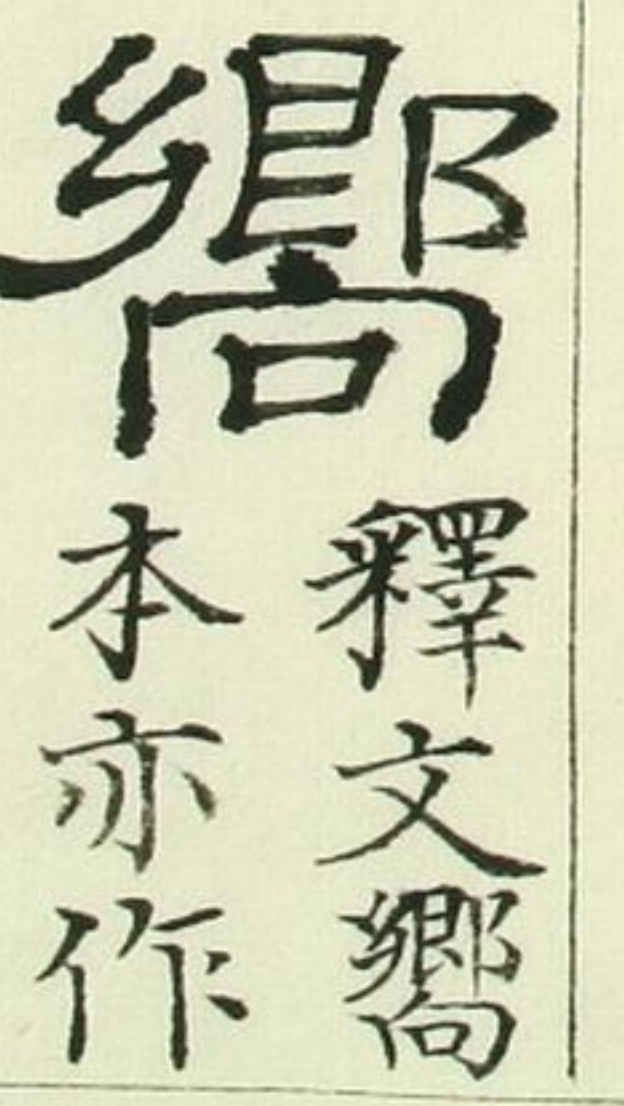 嚮
釋文嚮
本亦作